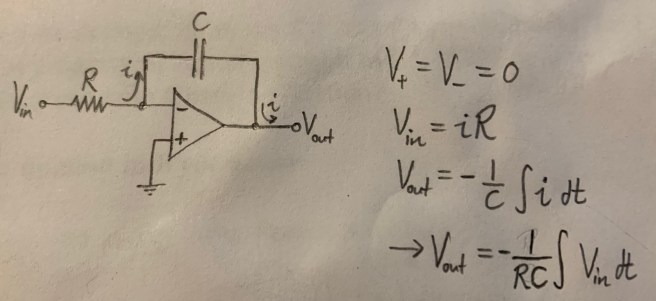 C
R
i
V_in
-
+
i
V_out
V_+ = V_- = 0
V_in = iR
V_out = -1/C ∫ i dt
→ V_out = -1/RC ∫ V_in dt